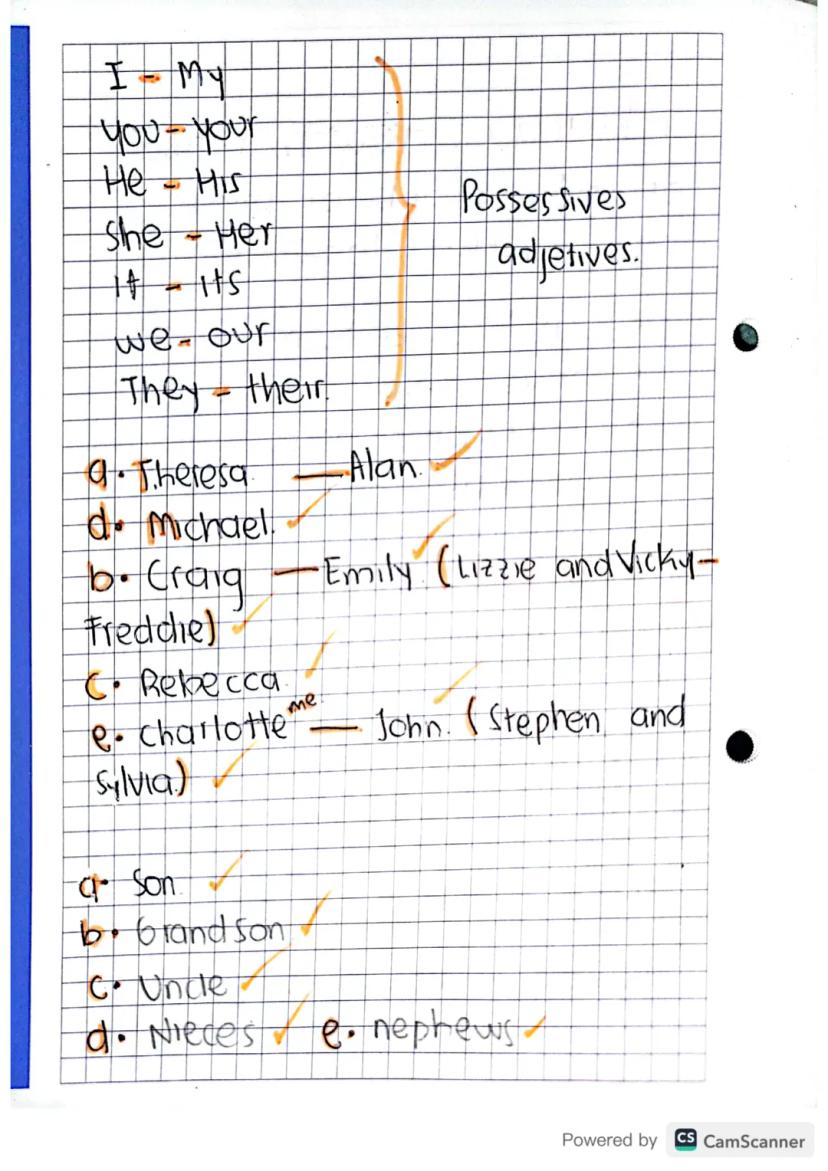 I - My
you - your
He - His
She - Her
It - Its
we - our
They - their.
Possessives
adjetives.
a. Theresa — Alan.
d. Michael.
b. Craig — Emily (Lizzie and Vicky -
Freddie)
c. Rebecca
e. charlotte me — John. (Stephen and
Sylvia)
a. Son
b. Grandson
c. Uncle
d. Nieces e. nephews
Powered by CS CamScanner